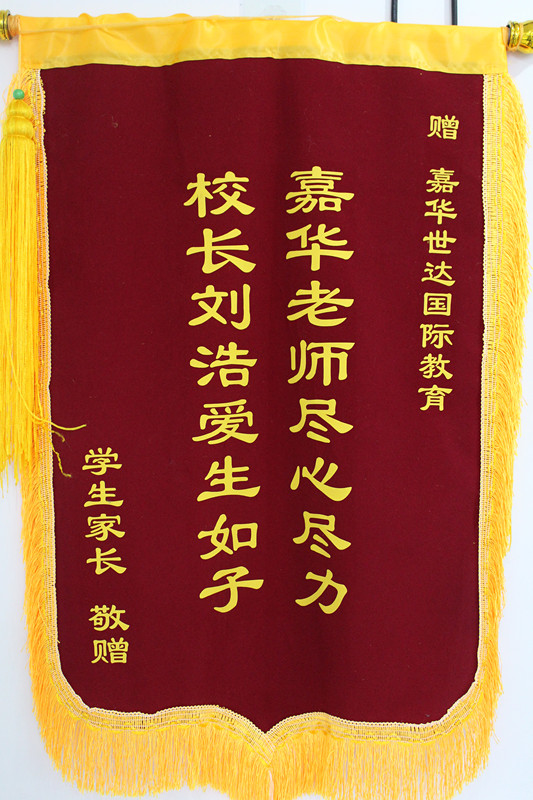 赠 嘉华世达国际教育
嘉华老师尽心尽力
校长刘浩爱生如子
学生家长 敬赠